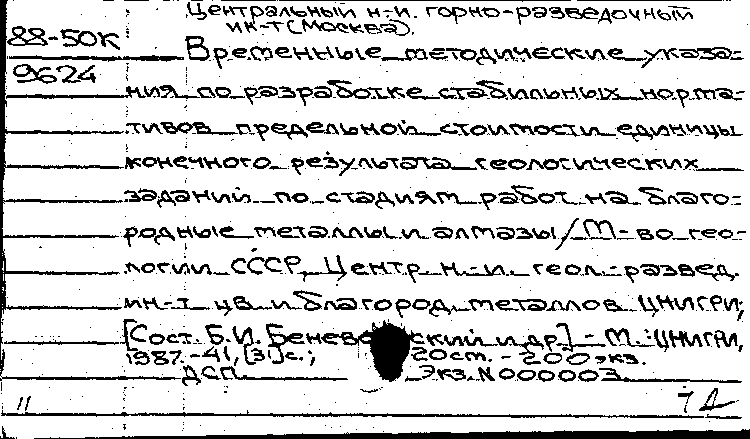 Центральный н-и. горно-разведочный
ин-т (Москва).
88-50К
Временные методические указа-
9624
ния по разработке стабильных норма-
тивов предельной стоимости единицы
конечного результата геологических
заданий по стадиям работ на благо-
родные металлы и алмазы / М-во гео-
логии СССР, Центр. н.-и. геол.-развед.
ин-т цв. и благород. металлов ЦНИГРИ;
[Сост. Б.И. Бенево ский и др.] - М.: ЦНИГРИ,
1987. - 41, [3] с.; 20 см. - 200 экз.
ДСП. Экз. N 000003.
11